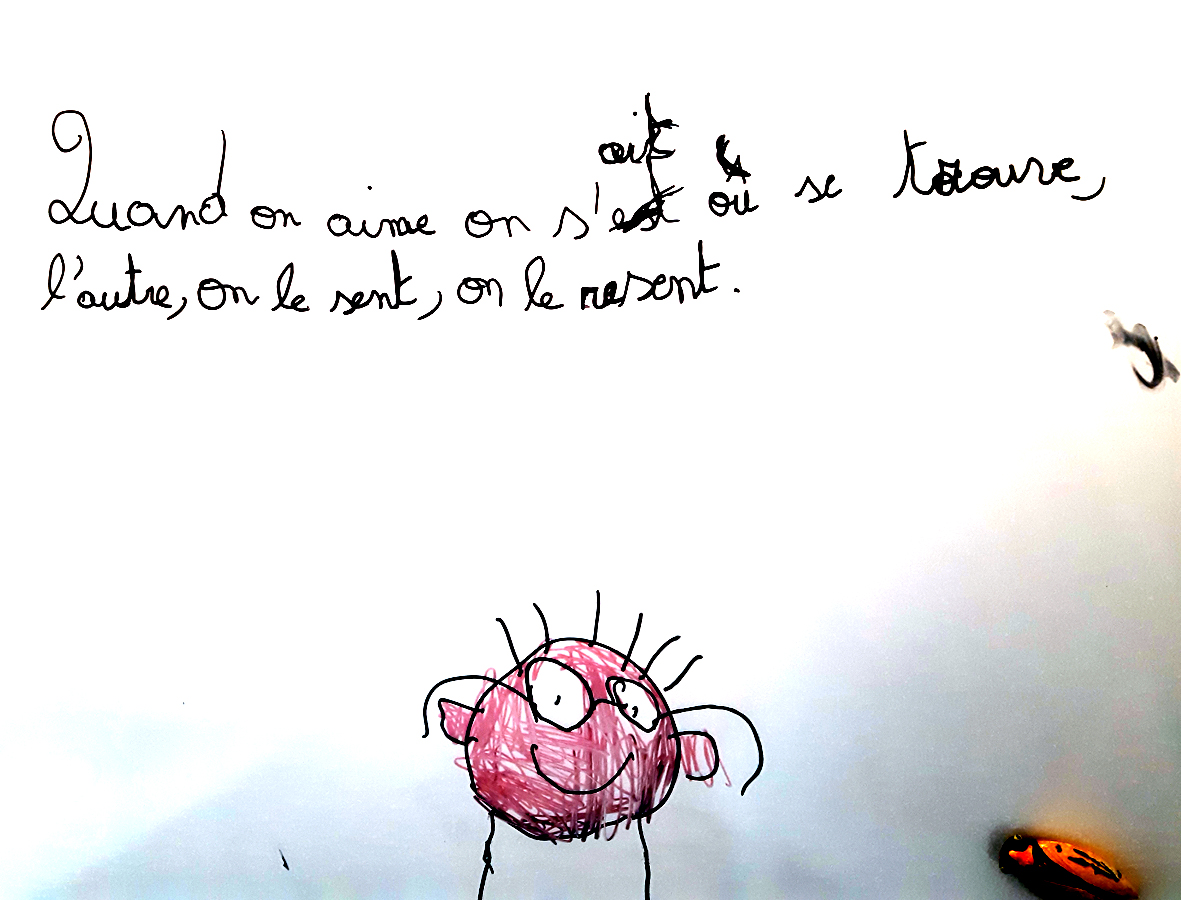 Quand on aime on s'ait où se trouve,
l'autre, on le sent, on le resent.